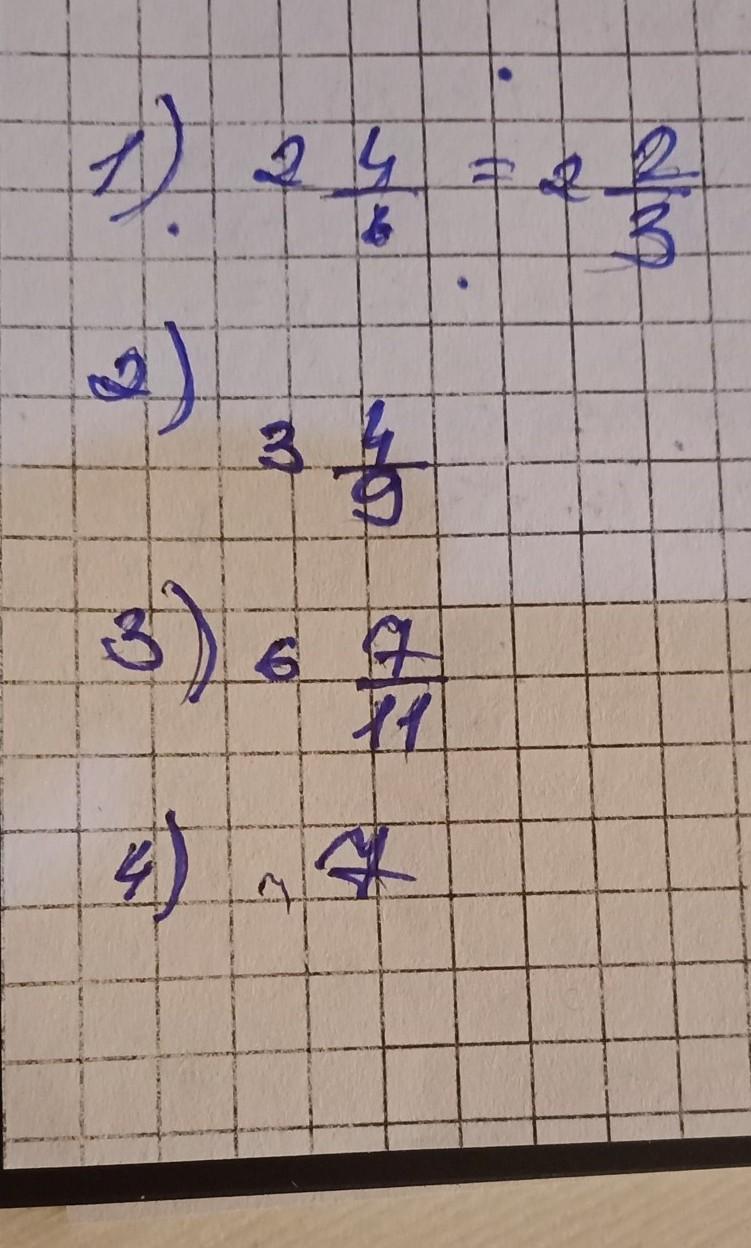 1) 2 4/6 = 2 2/3
2) 3 4/9
3) 6 7/11
4) 7